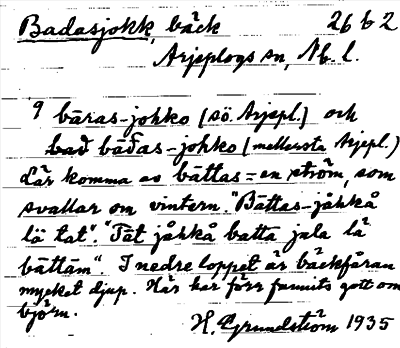 Badasjokk, bäck 26 b 2
Arjeplogs sn, Nb. l.
9 bāras-johko (sö. Arjepl.) och
bađ bāđas-johko (mellersta Arjepl.)
Lär komma av båttas = en ström, som
svallar om vintern. "Båttas-jåhkå
lä tat". "Tat jåhkå batta jala lä
båttåm". I nedre loppet är bäckfåran
mycket djup. Här har förr funnits gott om
björn.
H. Grundström 1935